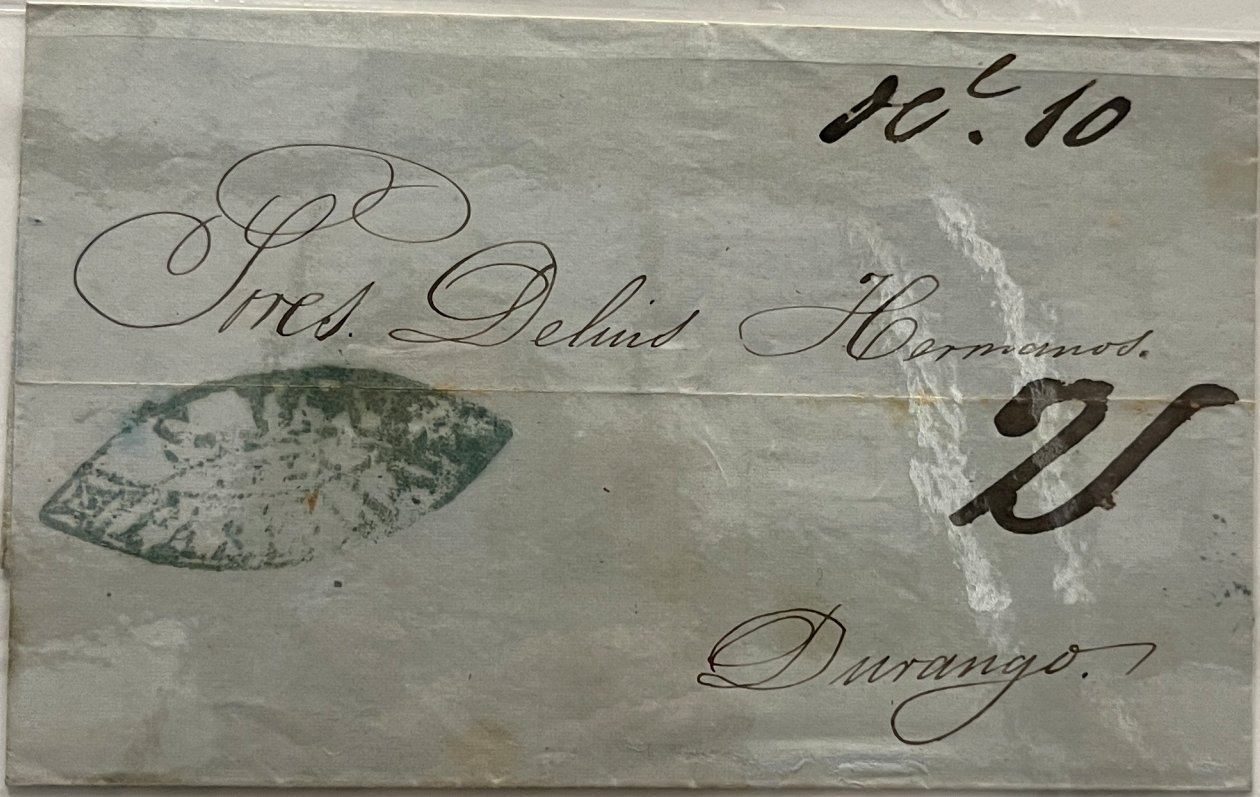 Oct. 10
Sres. Delius Hermanos.
Durango.